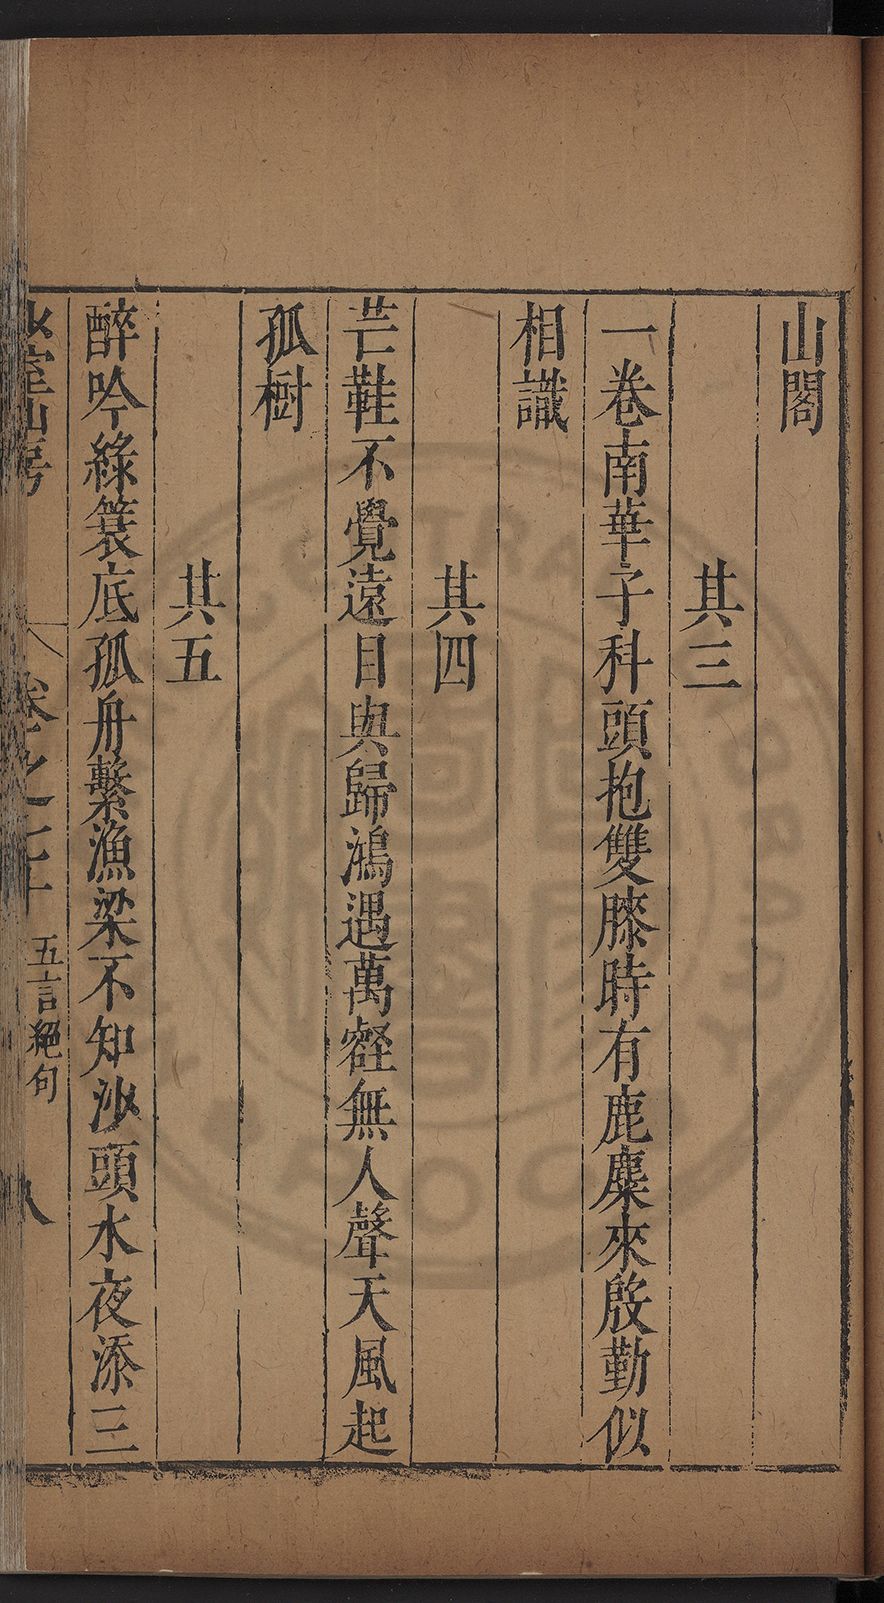 山閣
其三
一卷南華子科頭抱雙膝時有鹿麋來慇勤似
相識
其四
芒鞋不覺遠目與歸鴻遇萬壑無人聲天風起
孤樹
其五
醉吟綠簑底孤舟繫漁梁不知沙頭水夜添三
室山房
卷之七十 五言絕句 八